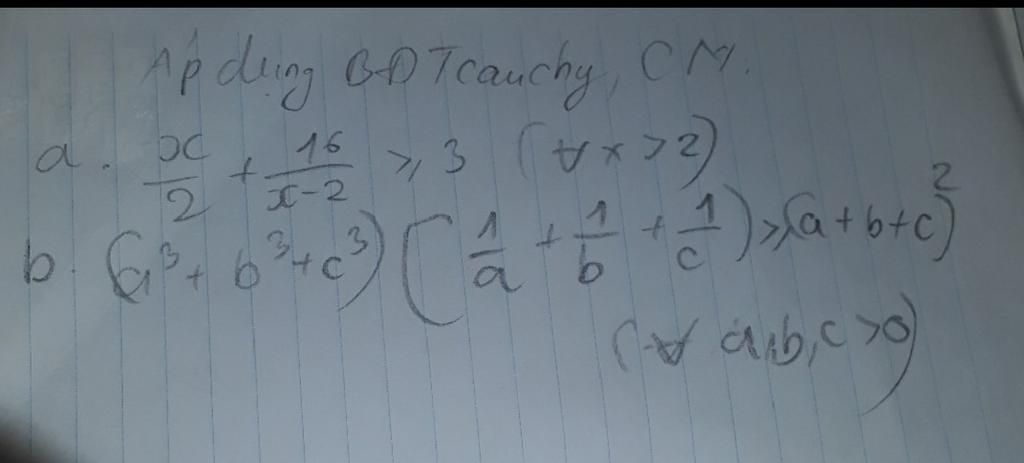 Áp dụng BĐT cauchy, CM.
a. x/2 + 16/(x-2) ⩾ 3 (∀x > 2)
b. (a³ + b³ + c³) (1/a + 1/b + 1/c) ⩾ (a + b + c)²
(∀ a, b, c > 0)